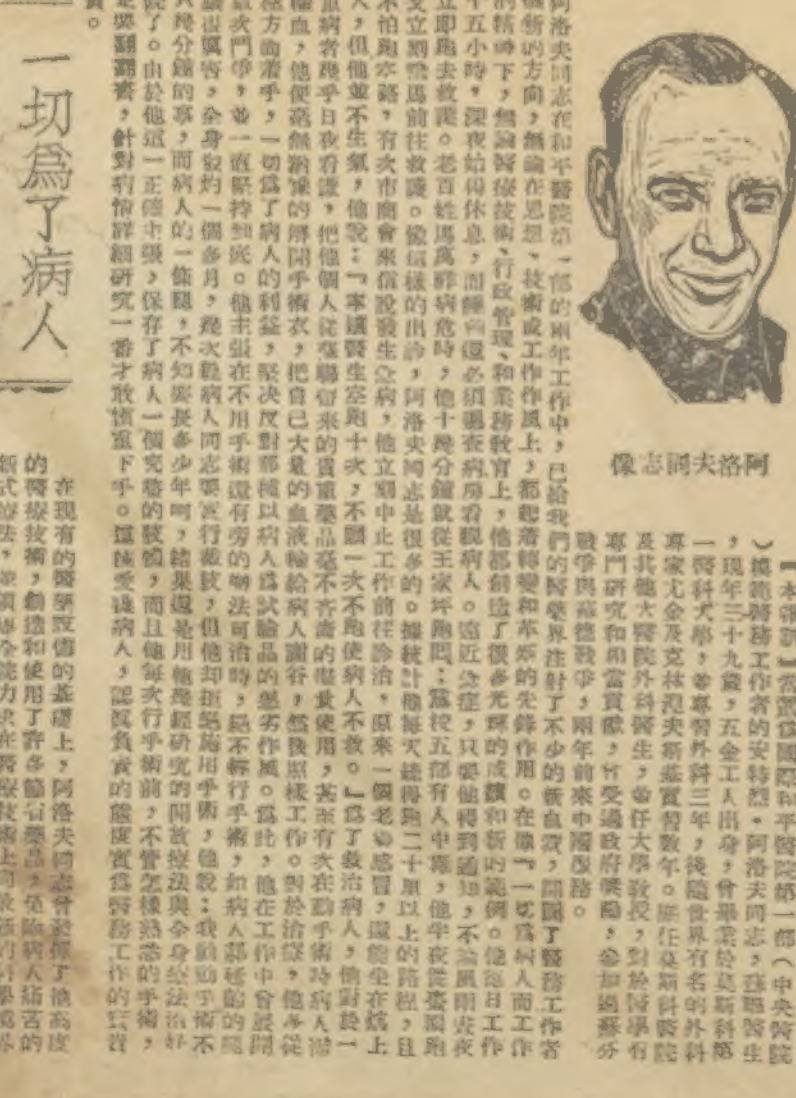 阿洛夫同志像
【本報訊】當選為國際和平醫院第一部（中央醫院
）模範醫務工作者的安特烈·阿洛夫同志，蘇聯醫生
，現年三十九歲，五金工人出身，曾畢業於莫斯科第
一醫科大學，並專習外科三年，後隨世界有名的外科
專家尤金及克林涅夫斯基實習數年。歷任莫斯科醫院
及其他大醫院外科醫生，並任大學教授，對於醫學有
專門研究和相當貢獻，曾受過政府獎勵，參加過蘇芬
戰爭與蘇德戰爭，兩年前來中國服務。
阿洛夫同志在和平醫院第一部的兩年工作中，已給我們的醫藥界注射了不少的新血液，開闢了醫務工作者
新的方向，無論在思想、技術或工作作風上，都起着轉變和革新的先鋒作用。在他『一切為病人而工作
的精神下，無論醫療技術、行政管理、和業務教育上，他都創造了很多光輝的成績和新的範例。他每日工作
十五小時，深夜始得休息，而睡前還必須親查病房看視病人。遠近急症，只要他得到通知，不論風雨黑夜
立即跑去救護。老百姓馮萬祥病危時，他十幾分鐘就從王家坪跑回；黨校五部有人中毒，他半夜從臺頭跑
立刻乘馬前往救護。像這樣的出診，阿洛夫同志是很多的。據統計他每天總得跑二十里以上的路程，且
不怕跑空路，有次市商會來信說發生急病，他立刻中止工作前往診治，原來一個老婆感冒，還能坐在炕上
，但他並不生氣，他說：『寧讓醫生空跑十次，不願一次不跑使病人不救。』為了救治病人，他對於一
重病者幾乎日夜看護，把他個人從蘇聯帶來的貴重藥品毫不吝嗇的儘量使用，甚至有次在動手術時病人需
輸血，他便毫無猶豫的解開手術衣，把自己大量的血液輸給病人謝谷，然後照樣工作。對於治療，他多從
方面着手，一切為了病人的利益，堅決反對那種以病人為試驗品的惡劣作風。為此，他在工作中曾展開
次鬥爭，並一直堅持到底。他主張在不用手術還有旁的辦法可治時，絕不輕行手術，如病人郝延齡的腿
厲害，全身發灼一個多月，幾次經病人同志要實行截肢，但他却拒絕施用手術，他說：我動動手術不
幾分鐘的事，而病人的一條腿，不知要長多少年呵，結果還是用他幾經研究的開放療法與全身療法治好
了。由於他這一正確主張，保存了病人一個完整的肢體，而且他每次行手術前，不管怎樣熟悉的手術，
要翻翻書，針對病情詳細研究一番才敢慎重下手。這種愛護病人，認真負責的態度實為醫務工作的
一切為了病人
在現有的醫藥設備的基礎上，阿洛夫同志曾發揮了他高度
的醫療技術，創造和使用了許多節省藥品，免除病人痛苦的